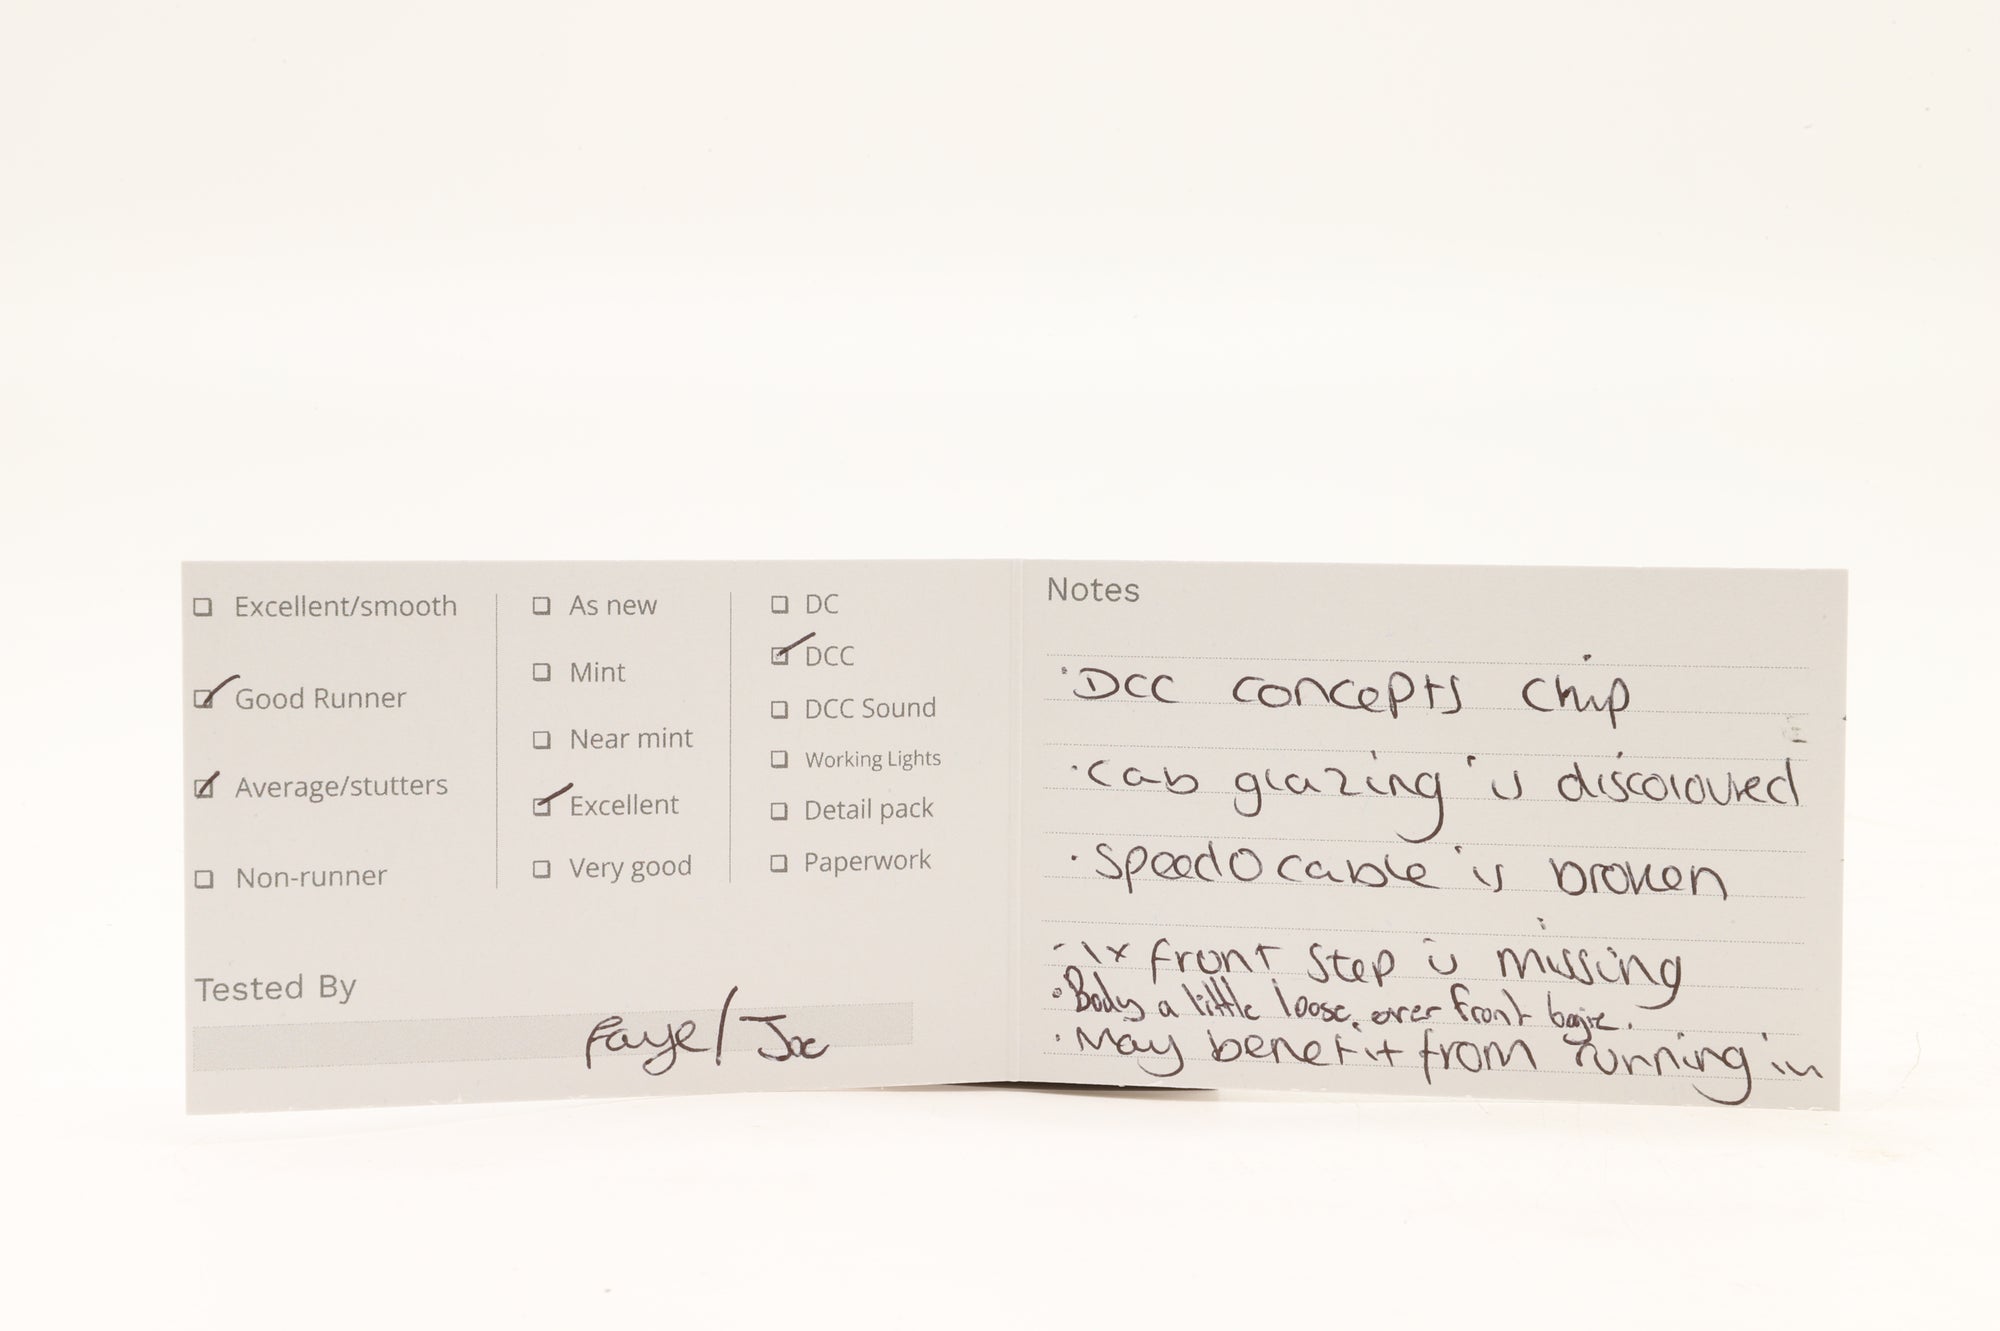 ☐ Excellent/smooth
☑ Good Runner
☑ Average/stutters
☐ Non-runner
☐ As new
☐ Mint
☐ Near mint
☑ Excellent
☐ Very good
☐ DC
☑ DCC
☐ DCC Sound
☐ Working Lights
☐ Detail pack
☐ Paperwork
Tested By
Faye/Joe
Notes
·DCC concepts chip
·cab glazing is discoloured
·speedo cable is broken
-1x front step is missing
·Body a little loose, over front bogie.
·May benefit from running in